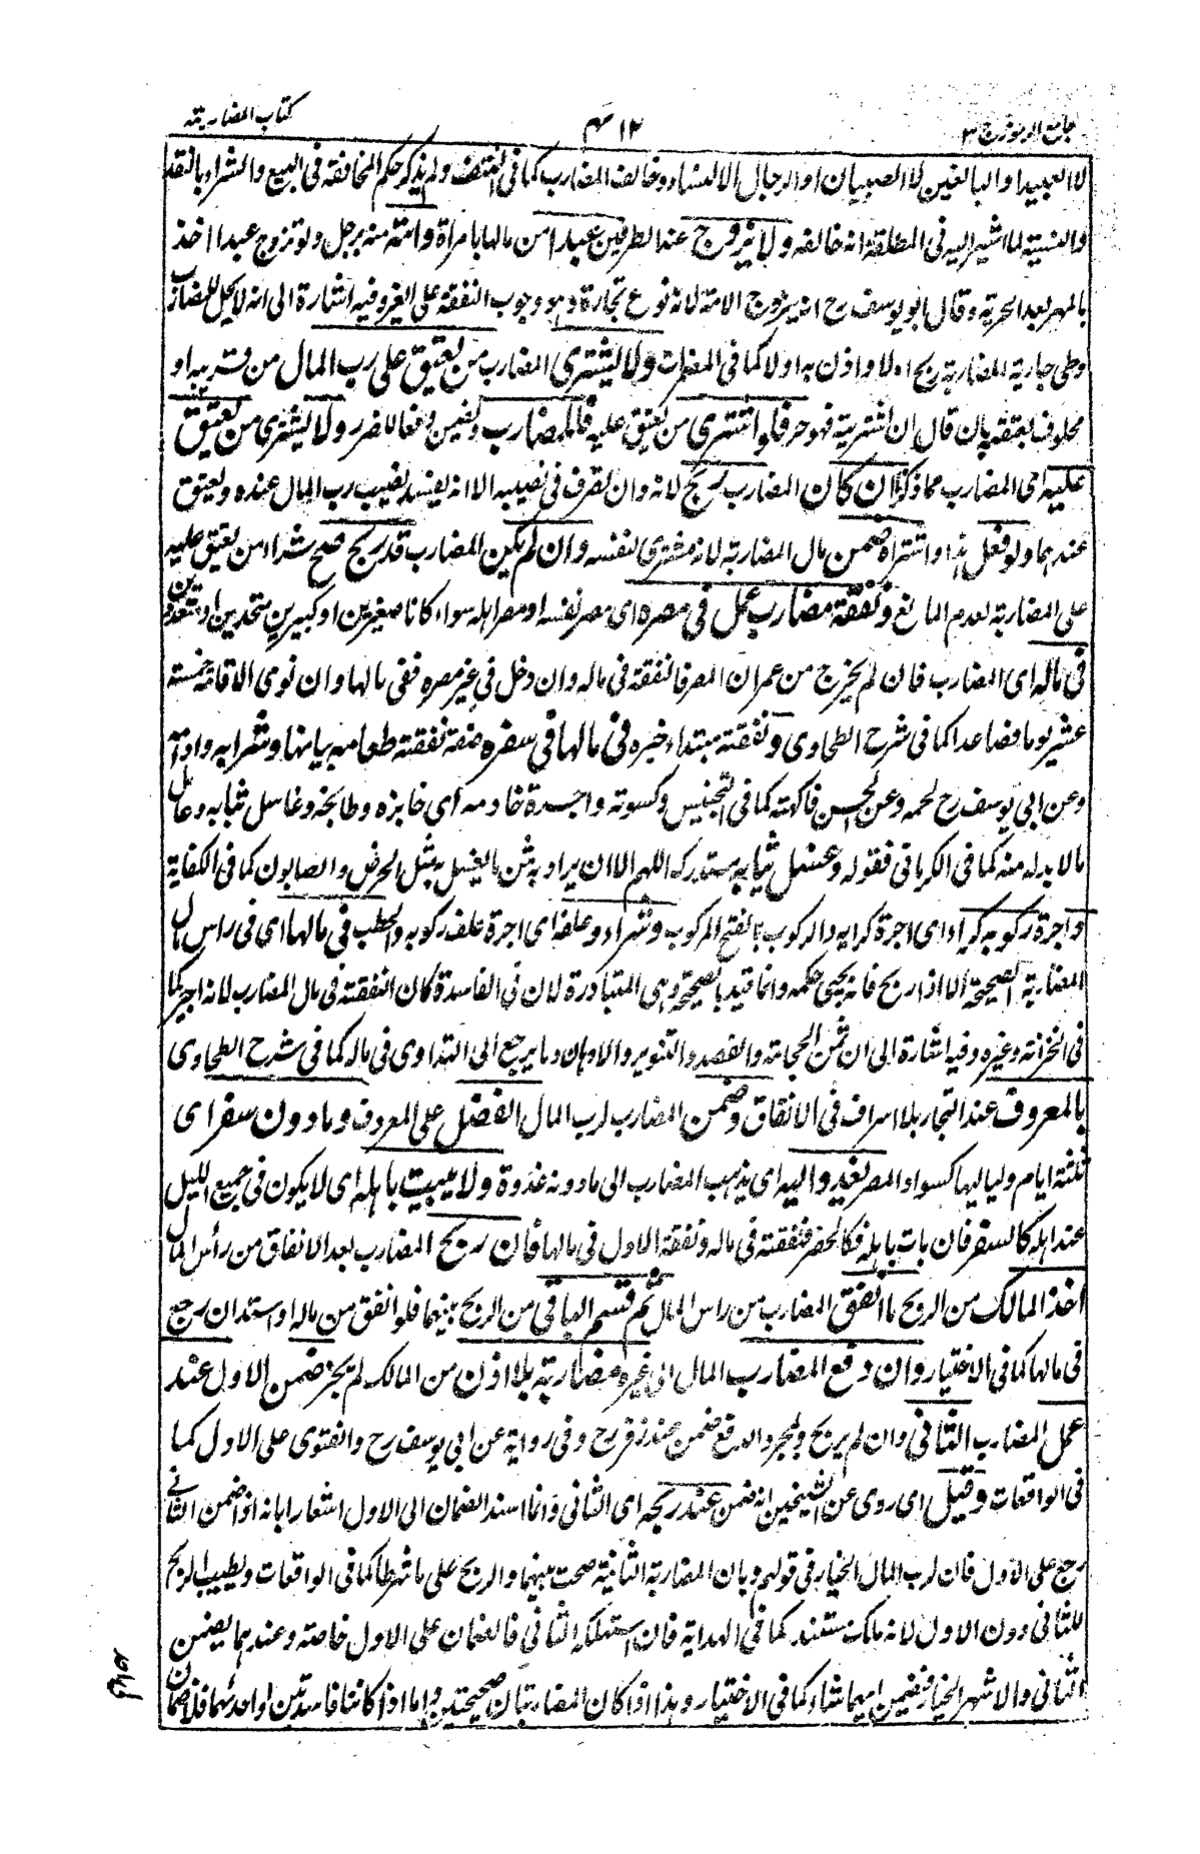 كتاب المضاربة
٤١٢
جامع الرموز ج ٣
لا العبيد او البالغين لا الصبيان او الرجال لا النساء وخالف المضارب كما فى النتف ولم يذكر حكم المخالفة فى البيع والشراء بالنقد
والنسيئة لما اشير اليه فى المطلقة انه خالفه ولا يزوج عند الطرفين عبدا من مالها بامرأة وامته منه برجل ولو تزوج عبدا اخذ
بالمهر بعد الحرية وقال ابو يوسف رح انه يزوج الامة لانه نوع تجارة وهو وجوب النفقة على الغير وفيه اشارة الى انه لا يحل للمضارب
وطى جارية المضاربة ربح اولا واذن به اولا كما فى المضمرات ولا يشترى المضارب من يعتق على رب المال من قريبه او
محلوف بعتقه بان قال ان اشتريته فهو حر فلو اشترى من يعتق عليه فللمضارب ويضمن دفعا للضرر ولا يشترى من يعتق
عليه اى المضارب مما ذكرنا ان كان المضارب ربح لانه وان تصرف فى نصيبه الا انه يفسد نصيب رب المال عنده ويعتق
عندهما ولو فعل هذا واشتراه ضمن مال المضاربة لانه مشترى لنفسه وان لم يكن المضارب قد ربح صح شراء من يعتق عليه
على المضاربة لعدم المانع ونفقة مضارب عمل فى مصره اى مصر نفسه او مصر اهله سواء كانا صغيرين او كبيرين متحدين او متعددين
فى ماله اى المضارب فان لم يخرج من عمران المصر فالنفقة فى ماله وان دخل فى غير مصره ففى مالها وان نوى الاقامة خمسة
عشر يوما فصاعدا كما فى شرح الطحاوى ونفقته مبتداء خبره فى مالها فى سفره صفة نفقته طعامه بيانها وشرابه وادامه
وعن ابى يوسف رح لحمه وعن الحسن فاكهته كما فى التجنيس وكسوته واجرة خادمه اى خابزه وطابخه وغاسل ثيابه وعامل
ما لا بد له منه كما فى الكرمانى فقوله وغسل ثيابه مستدرك اللهم الا ان يراد به ثمن ما يغسل به مثل الحرض والصابون كما فى الكفاية
واجرة ركوبه كراء اى اجرة كرايه والركوب بالفتح المركوب وشراء وعلفه اى اجرة علف ركوبه والحطب فى مالها اى فى راس مال
المضاربة الصحيحة الا اذا ربح فانه يجىء حكمه وانما قيد بالصحيحة وهى المتبادرة لان فى الفاسدة كان النفقة فى مال المضارب لانه اجير كما
فى الخزانة وغيره وفيه اشارة الى ان ثمن الحجامة والفصد والتنوير والادهان وما يرجع الى التداوى فى ماله كما فى شرح الطحاوى
بالمعروف عند التجار بلا اسراف فى الانفاق وضمن المضارب لرب المال الفضل على المعروف وما دون سفر اى
ثلثة ايام ولياليها كسواد المصر يغدو اليه اى يذهب المضارب الى ما دونه غدوة ولا يبيت باهله اى لا يكون فى جميع الليل
عند اهله كالسفر فان بات باهله فكالحضر فنفقته فى ماله ونفقة الاول فى مالها فان ربح المضارب بعد الانفاق من رأس المال
اخذ المالك من الربح ما انفق المضارب من راس المال ثم قسم الباقى من الربح بينهما فلو انفق من ماله او استدان رجع
فى مالها كما فى الاختيار وان دفع المضارب المال الى غيره مضاربة بلا اذن من المالك لم يجز ضمن الاول عند
عمل المضارب الثانى وان لم يربح وبمجرد الدفع ضمن عند زفر رح وفى رواية عن ابى يوسف رح والفتوى على الاول كما
فى الواقعات وقيل اى روى عن الشيخين انه ضمن عند ربحه اى الثانى وانما اسند الضمان الى الاول اشعارا بانه اذا ضمن الثانى
رجع على الاول فان لرب المال الخيار فى قولهم وبان المضاربة الثانية صحت بينهما والربح على ما شرطا كما فى الواقعات ويطيب الربح
للثانى دون الاول لانه ملك مستند كما فى الهداية فان استهلكه الثانى فالضمان على الاول خاصة وعندهما يضمن
الثانى والاشهر الخيار فيضمن ايهما شاء كما فى الاختيار وهذا اذا كان المضاربتان صحيحتين واما اذا كانتا فاسدتين او احدىهما فلا ضمان